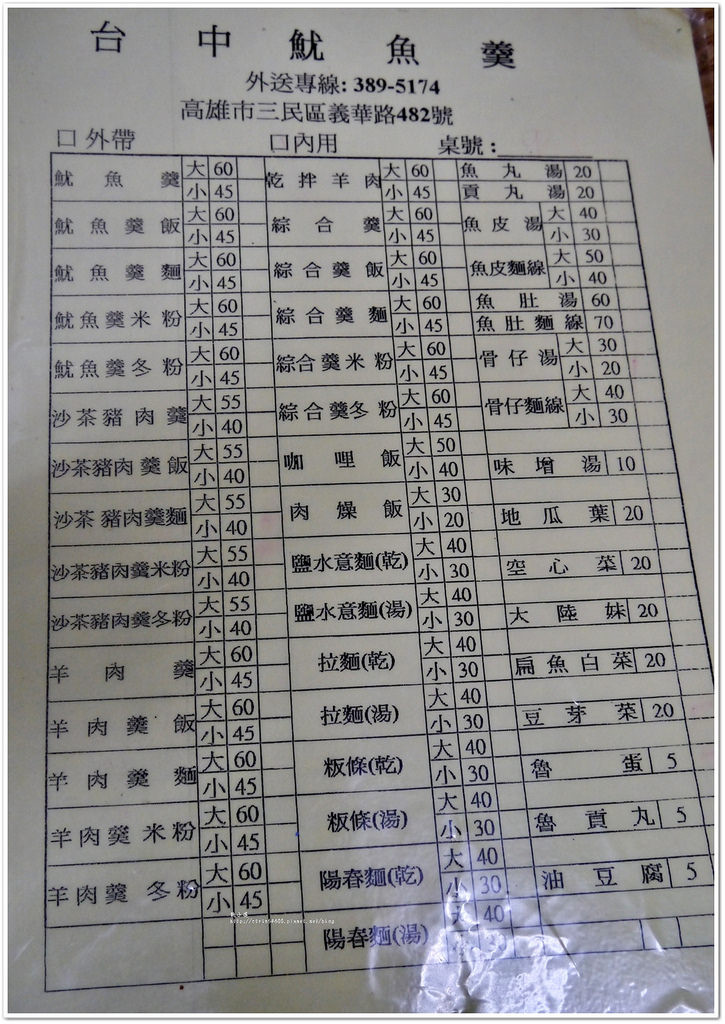 台中魷魚羹
外送專線: 389-5174
高雄市三民區義華路482號
口外帶 口內用 桌號：
魷魚羹 大 60 小 45
魷魚羹飯 大 60 小 45
魷魚羹麵 大 60 小 45
魷魚羹米粉 大 60 小 45
魷魚羹冬粉 大 60 小 45
沙茶豬肉羹 大 55 小 40
沙茶豬肉羹飯 大 55 小 40
沙茶豬肉羹麵 大 55 小 40
沙茶豬肉羹米粉 大 55 小 40
沙茶豬肉羹冬粉 大 55 小 40
羊肉羹 大 60 小 45
羊肉羹飯 大 60 小 45
羊肉羹麵 大 60 小 45
羊肉羹米粉 大 60 小 45
羊肉羹冬粉 大 60 小 45
乾拌羊肉 大 60 小 45
綜合羹 大 60 小 45
綜合羹飯 大 60 小 45
綜合羹麵 大 60 小 45
綜合羹米粉 大 60 小 45
綜合羹冬粉 大 60 小 45
咖哩飯 大 50 小 40
肉燥飯 大 30 小 20
鹽水意麵(乾) 大 40 小 30
鹽水意麵(湯) 大 40 小 30
拉麵(乾) 大 40 小 30
拉麵(湯) 大 40 小 30
粄條(乾) 大 40 小 30
粄條(湯) 大 40 小 30
陽春麵(乾) 大 40 小 30
陽春麵(湯) 大 40
魚丸湯 20
貢丸湯 20
魚皮湯 大 40 小 30
魚皮麵線 大 50 小 40
魚肚湯 60
魚肚麵線 70
骨仔湯 大 30 小 20
骨仔麵線 大 40 小 30
味增湯 10
地瓜葉 20
空心菜 20
大陸妹 20
扁魚白菜 20
豆芽菜 20
魯蛋 5
魯貢丸 5
油豆腐 5